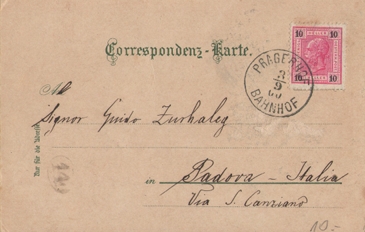 Correspondenz-Karte.
10 10
10 10
PRAGERHOF
3
9
00
BAHNHOF
Al
Signor Guido Zurhaleg
Nur für die Adresse
in Padova - Italia
Via S. Canziano
10.-